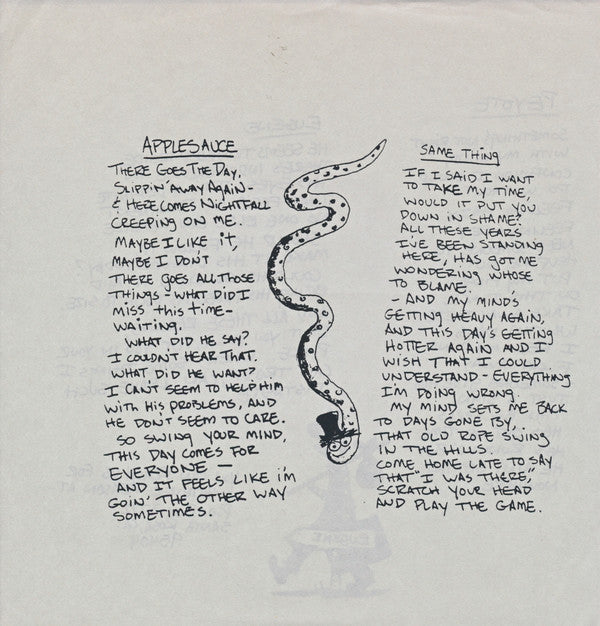 APPLESAUCE
THERE GOES THE DAY,
SLIPPIN' AWAY AGAIN-
& HERE COMES NIGHTFALL
CREEPING ON ME.
MAYBE I LIKE iT,
MAYBE I DON'T
THERE GOES ALL THOSE
THINGS - WHAT DID I
MiSS THiS TIME-
WAITING.
WHAT DID HE SAY?
I COULDN'T HEAR THAT.
WHAT DID HE WANT?
I CAN'T SEEM TO HELP HIM
WITH HIS PROBLEMS, AND
HE DON'T SEEM TO CARE.
SO SWING YOUR MIND,
THIS DAY COMES FOR
EVERYONE —
AND IT FEELS LIKE i'M
GOIN' THE OTHER WAY
SOMETIMES.
SAME THING
IF I SAID I WANT
TO TAKE MY TIME,
WOULD IT PUT YOU
DOWN IN SHAME?
ALL THESE YEARS
I'VE BEEN STANDING
HERE, HAS GOT ME
WONDERING WHOSE
TO BLAME.
- AND MY MIND'S
GETTING HEAVY AGAIN,
AND THIS DAY'S GETTING
HOTTER AGAIN AND I
WISH THAT I COULD
UNDERSTAND - EVERYTHING
I'M DOING WRONG.
MY MIND SETS ME BACK
TO DAYS GONE BY,
THAT OLD ROPE SWING
IN THE HILLS.
COME HOME LATE TO SAY
THAT "I WAS THERE,"
SCRATCH YOUR HEAD
AND PLAY THE GAME.